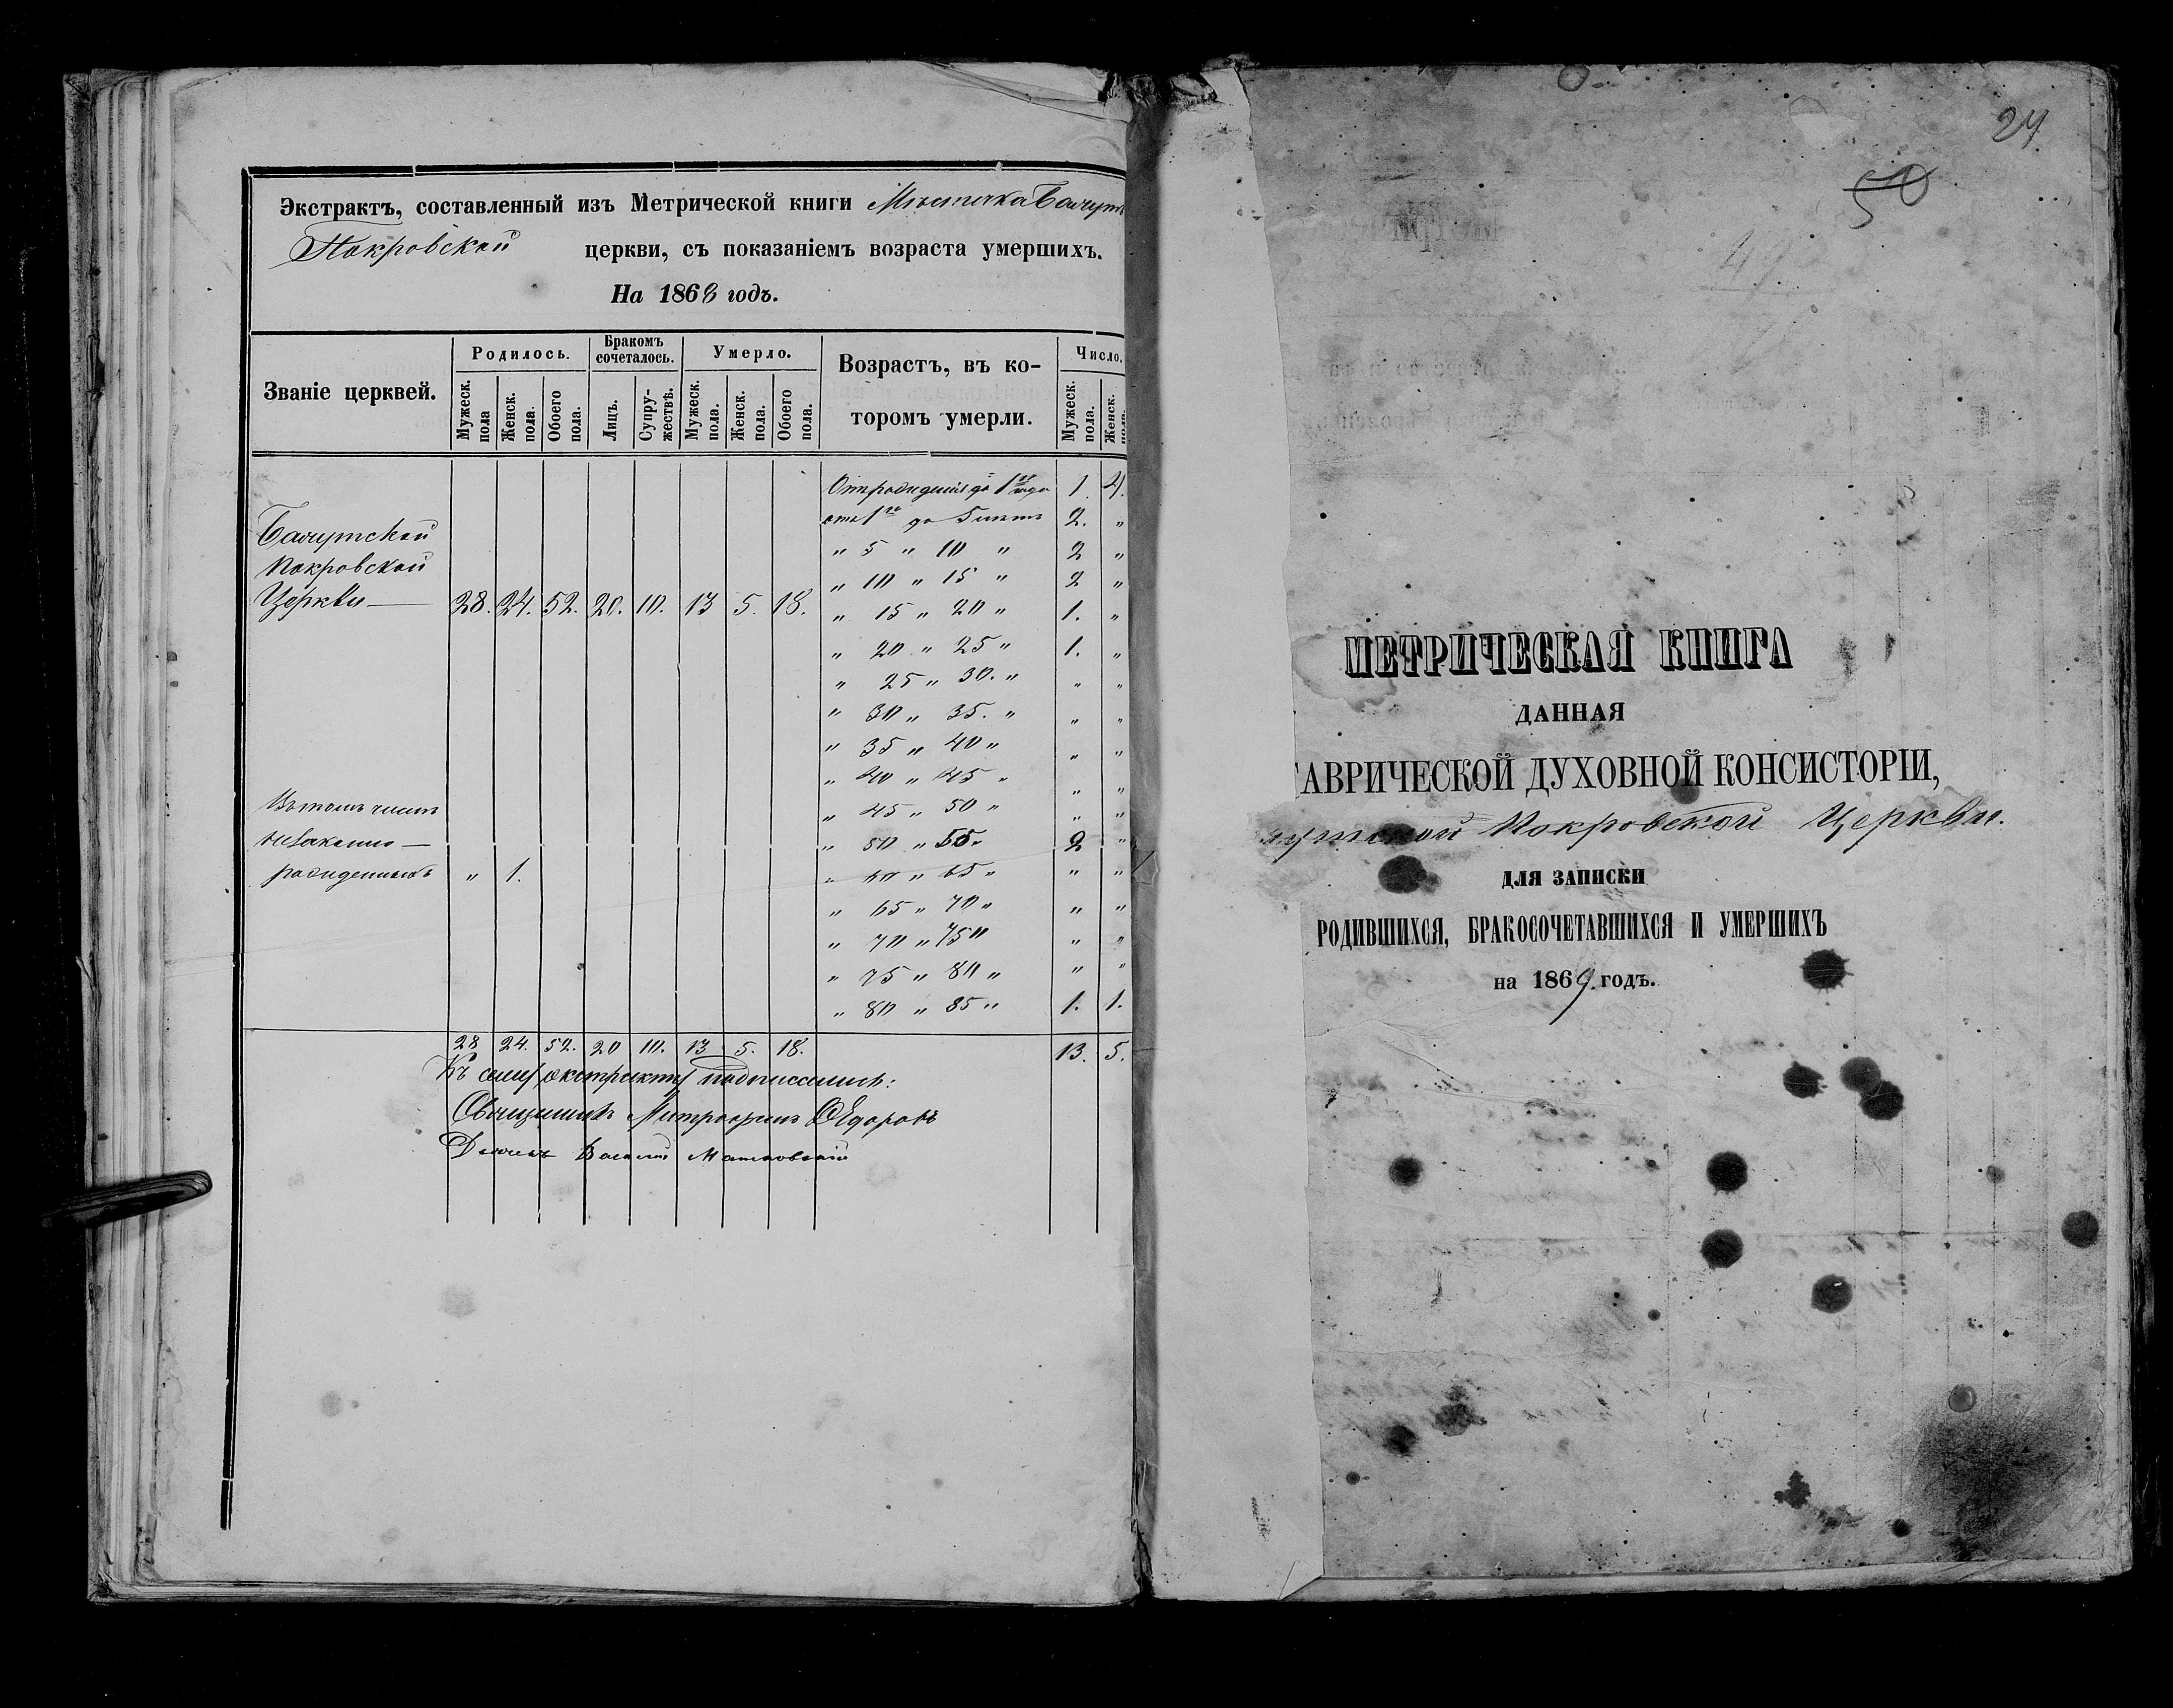 Экстрактъ, составленный изъ Метрической книги Мѣстечка
Покровской церкви, съ показаніемъ возраста умершихъ.
На 1868 годъ.
Званіе церквей. Родилось. Бракомъ сочеталось. Умерло. Возрастъ, въ ко-торомъ умерли. Число.
Мужеск. пола Женск. пола. Обоего пола. Лицъ. Супру-жествъ. Мужеск. пола. Женск. пола. Обоего пола. Мужеск. пола. Женск. пола.
Отъ рожденія до 1го года 1. 4.
отъ 1го до 5 лѣтъ 2. "
" 5 " 10 " 2 "
" 10 " 15 " 2 "
" 15 " 20 " 1. "
" 20 " 25 " 1. "
" 25 " 30. " " "
" 30 " 35. " " "
" 35 " 40 " " "
" 40 " 45 " " "
" 45 " 50 " " "
" 50 " 55. 2 "
" 60 " 65 " " "
" 65 " 70 " " "
" 70 " 75 " " "
" 75 " 80 " " "
" 80 " 85 " 1. 1.
Покровской
Церкви — 28. 24. 52. 20. 10. 13 5. 18.
Въ томъ числѣ
незаконно —
рожденныхъ " 1.
28 24. 52. 20 10. 13 5. 18. 13. 5.
Къ сему экстракту подписались:
Священникъ Митрофанъ Ѳедоровъ
Дьячекъ Василій
24.
50
49
МЕТРИЧЕСКАЯ КНИГА
ДАННАЯ
АВРИЧЕСКОЙ ДУХОВНОЙ КОНСИСТОРІИ,
Покровской Церкви.
ДЛЯ ЗАПИСКИ
РОДИВШИХСЯ, БРАКОСОЧЕТАВШИХСЯ И УМЕРШИХЪ
на 1869. годъ.